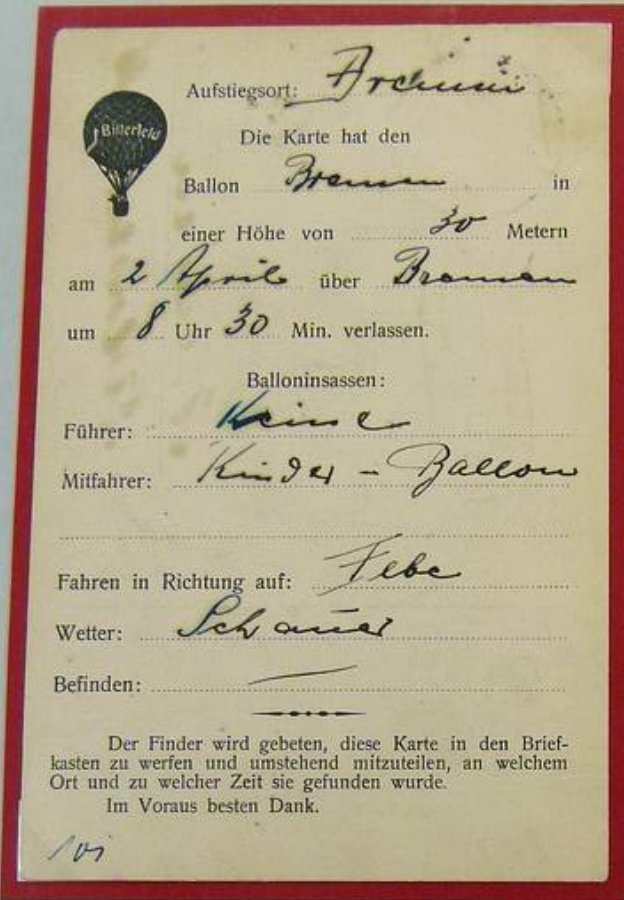 Bitterfeld
Aufstiegsort:
Die Karte hat den
Ballon Bremen in
einer Höhe von 30 Metern
am 2 April über Bremen
um 8 Uhr 30 Min. verlassen.
Balloninsassen:
Führer: Keine
Mitfahrer: Kinder - Ballon
Fahren in Richtung auf:
Wetter: Schauer
Befinden: —
Der Finder wird gebeten, diese Karte in den Brief-
kasten zu werfen und umstehend mitzuteilen, an welchem
Ort und zu welcher Zeit sie gefunden wurde.
Im Voraus besten Dank.